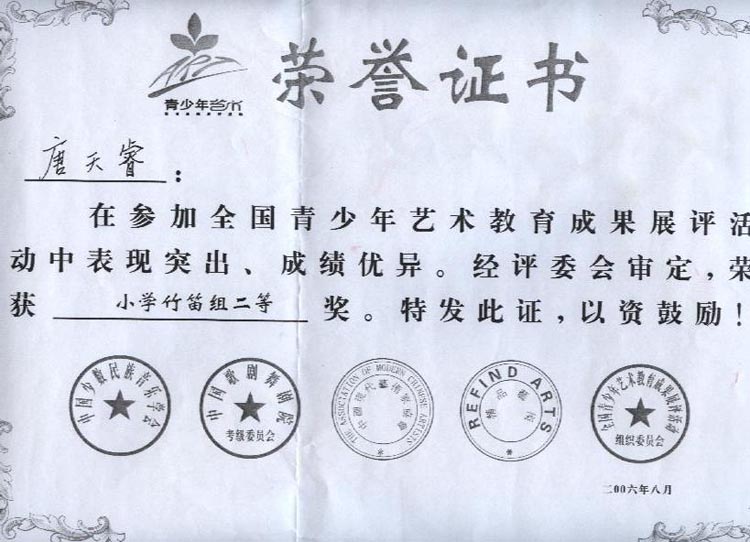 荣誉证书
青少年艺术
唐天睿：
在参加全国青少年艺术教育成果展评活
动中表现突出、成绩优异。经评委会审定，荣
获 小学竹笛组二等 奖。特发此证，以资鼓励！
中国少数民族音乐学会
中国歌剧舞剧院
考级委员会
THE ASSOCIATION OF MODERN CHINESE ARTISTS
REFIND ARTS
全国青少年艺术教育成果展评活动
组织委员会
二00六年八月